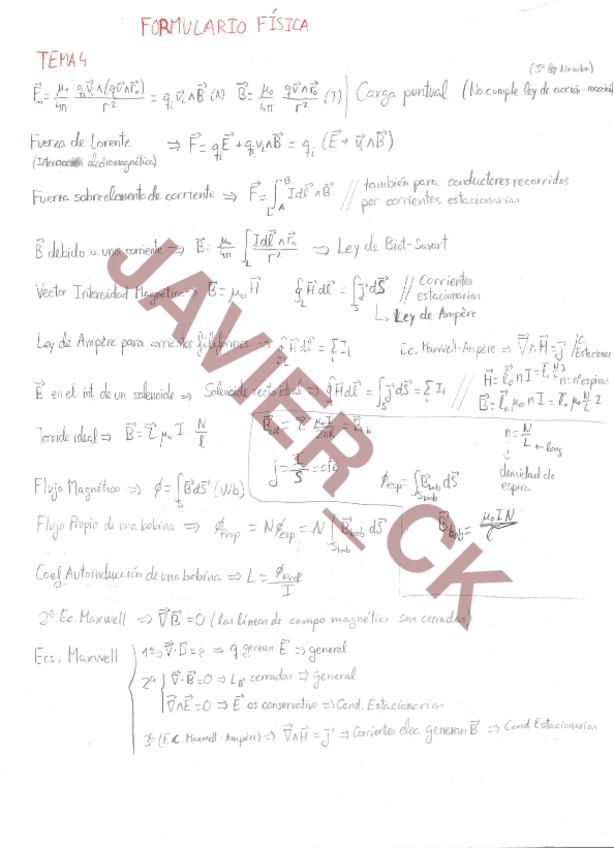 FORMULARIO FÍSICA
TEMA 4
(3ª ley Newton)
F⃗m = μ₀/4π · qᵢv⃗ᵢ∧(qv⃗∧r⃗₀)/r² = qᵢv⃗ᵢ∧B⃗ (N) B⃗ = μ₀/4π · qv⃗∧r⃗₀/r² (T) | Carga puntual (No cumple ley de acción-reacción)
Fuerza de Lorentz ⇒ F⃗ = qᵢE⃗ + qᵢv⃗ᵢ∧B⃗ = qᵢ (E⃗ + v⃗ᵢ∧B⃗)
(Interacción electromagnética)
Fuerza sobre elemento de corriente ⇒ F⃗ = ∫_A^B Idl⃗∧B⃗ // también para conductores recorridos
por corrientes estacionarias
B⃗ debido a una corriente ⇒ B⃗ = μ₀/4π ∫_L Idl⃗∧r⃗₀/r² ⇒ Ley de Biot-Savart
Vector Intensidad Magnética ⇒ B⃗ = μ₀H⃗ ∮_L H⃗dl⃗ = ∫_S j⃗dS⃗ // Corrientes
estacionarias
↳ Ley de Ampère
Ley de Ampère para corrientes filiformes ⇒ ∮_L H⃗dl⃗ = ΣIᵢ Ec. Maxwell-Ampère ⇒ ∇⃗∧H⃗ = j⃗
en el int. de un solenoide ⇒ Solenoide recto ideal ⇒ ∮H⃗dl⃗ = ∫_S j⃗dS⃗ = ΣIᵢ //
n = nº espiras
Toroide ideal ⇒ B⃗ = τ⃗ μ₀ I N/l
n = N/L ← long
densidad de
espira
j = I/S = cte
Flujo Magnético ⇒ ϕ = ∫_S B⃗dS⃗ (Wb) ϕesp = ∫_Sbob B⃗bob dS⃗
Flujo Propio de una bobina ⇒ ϕProp = Nϕesp = N ∫_Sbob B⃗bob dS⃗ B⃗bob = μ₀IN/l
Coef. Autoinducción de una bobina ⇒ L = ϕProp/I
2ª Ec. Maxwell ⇒ ∇⃗B⃗ = 0 (las líneas de campo magnético son cerradas)
Ecs. Maxwell
1ª ⇒ ∇⃗·D⃗ = ρ ⇒ q generan E⃗ ⇒ general
2ª ∇⃗·B⃗ = 0 ⇒ L_B cerradas ⇒ general
∇⃗∧E⃗ = 0 ⇒ E⃗ es conservativo ⇒ Cond. Estacionarias
3ª (Ec Maxwell-Ampère) ⇒ ∇⃗∧H⃗ = j⃗ ⇒ Corrientes elec generan B⃗ ⇒ Cond Estacionarias
JAVIER_CK